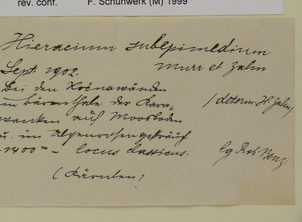 rev. conf. F. Schuhwerk (M) 1999
Hieracium subepimedium
Murr et Zahn
Sept 1902.
Bei den Kočnawänden
im bärenthale der Kara-
wanken auf Moorboden
u. im Alpenrosengesträuch
1400 m – locus classicus.
(Kärnten)
/ determ. H. Zahn /
lg Rob Benz